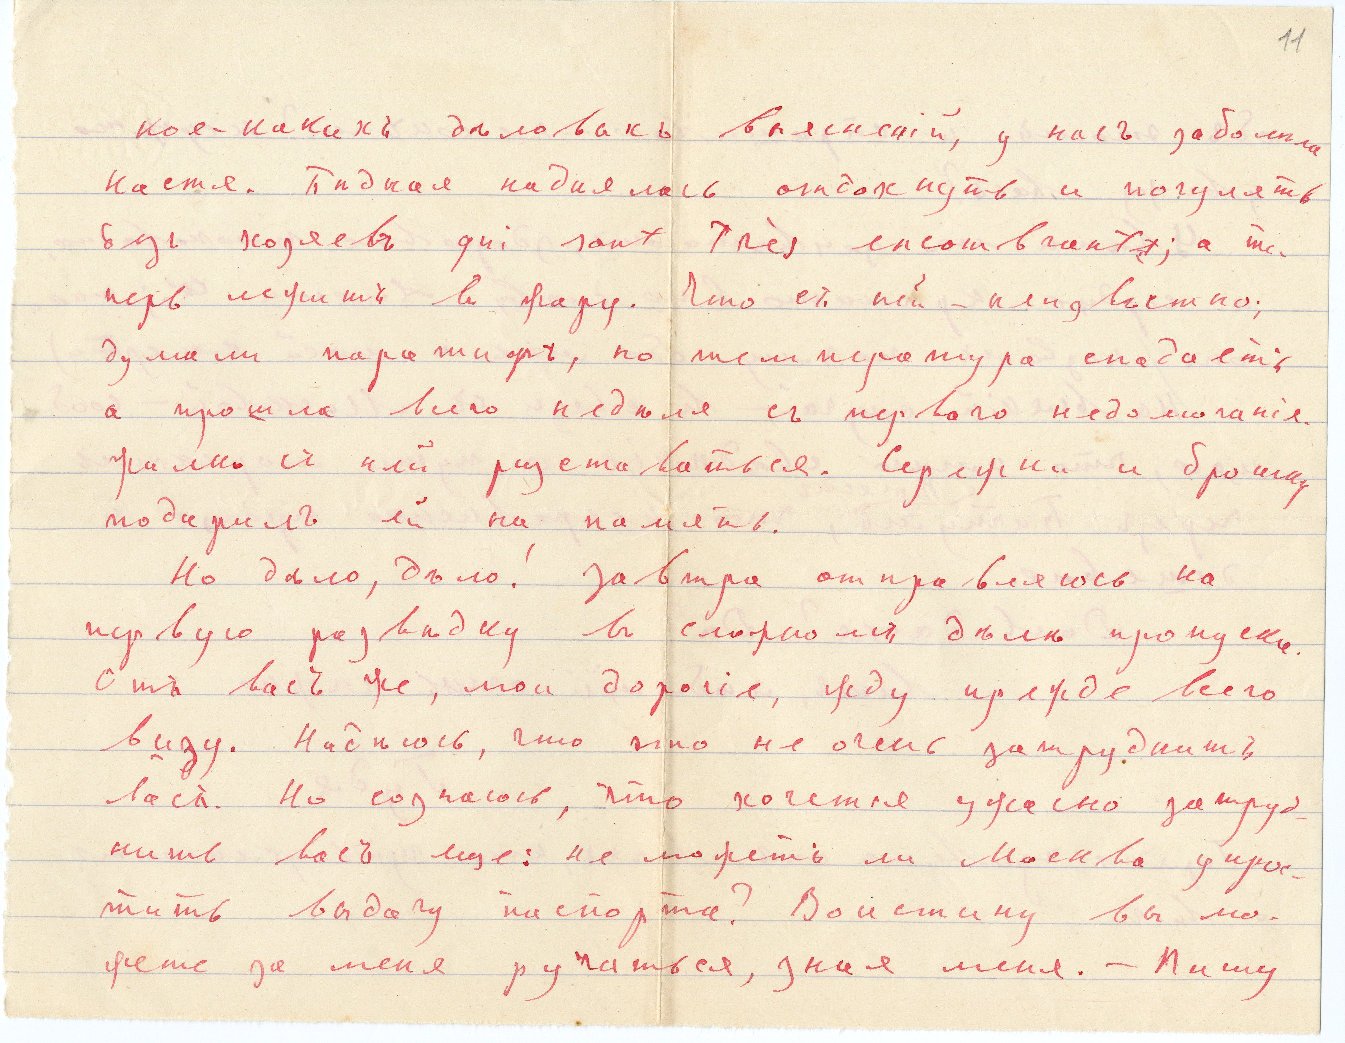 11
кое-какихъ дѣловыхъ выясненій, у насъ заболѣла
Настя. Бѣдная надѣялась отдохнуть и погулять
безъ хозяевъ qui sont très encombrants; а те-
перь лежитъ въ жару. Что съ ней – неизвѣстно;
думали паратифъ, но температура спадаетъ
а прошла всего недѣля съ перваго недомоганія.
Жалко съ ней разставаться. Сережки и брошку
подарилъ ей на память.
Но дѣло, дѣло! Завтра отправляюсь на
первую развѣдку въ сложномъ дѣлѣ пропуска.
Отъ васъ же, мои дорогіе, жду прежде всего
визу. Надѣюсь, что это не очень затруднитъ
васъ. Но сознаюсь, что хочется ужасно затруд-
нить васъ еще: не можетъ ли Москва упрос-
тить выдачу паспорта? Воистину вы мо-
жете за меня ручаться, зная меня. – Пишу